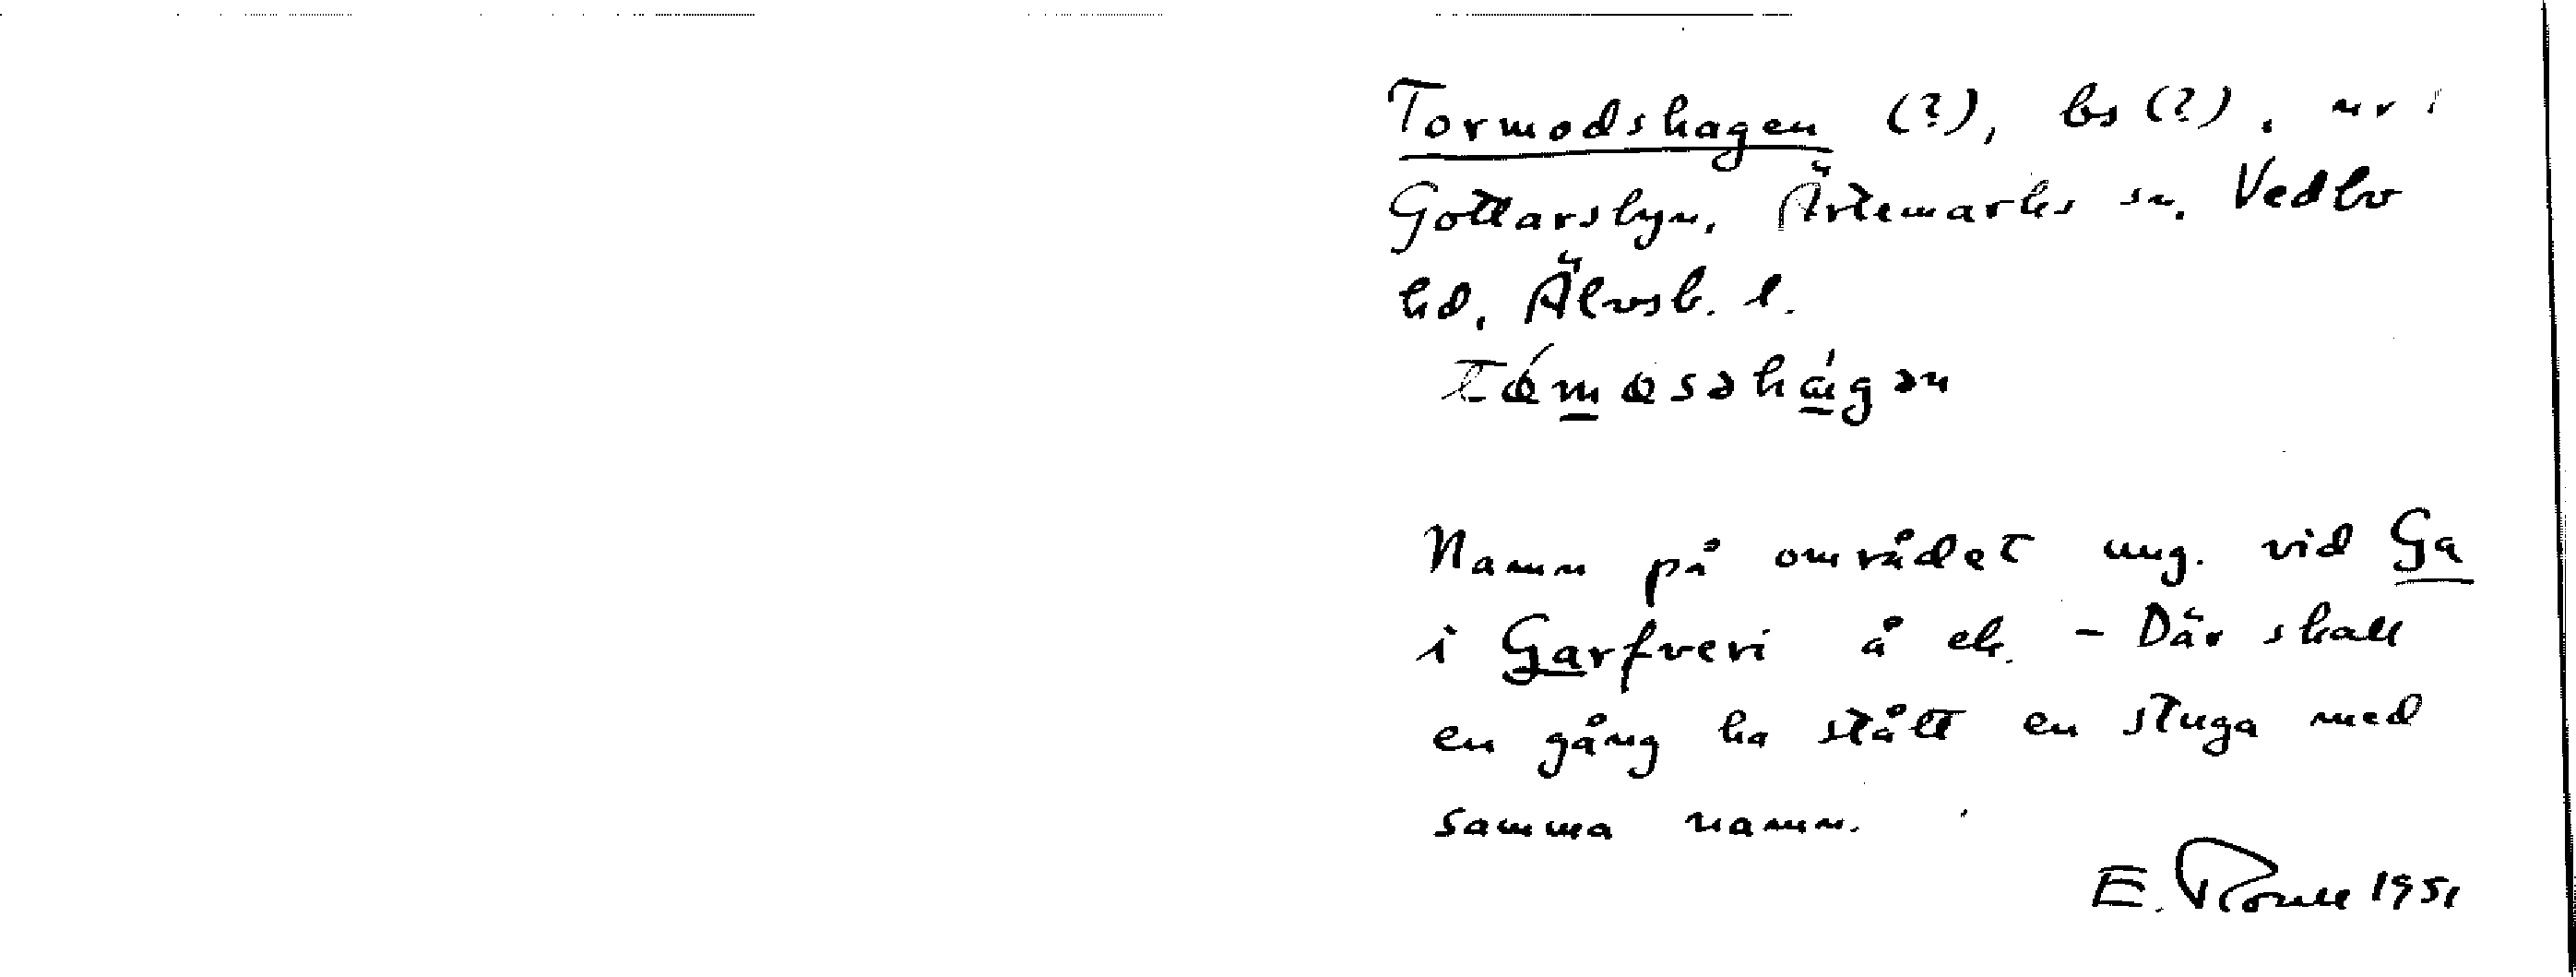 Tormodshagen (?), bs (?), nr
Gottarsbyn, Ärtemarks sn. Vedbo
hd, Älvsb. l.
Namn på området ung. vid Ga
i Garfveri å ek. – Där skall
en gång ha stått en stuga med
samma namn.
E. 1951